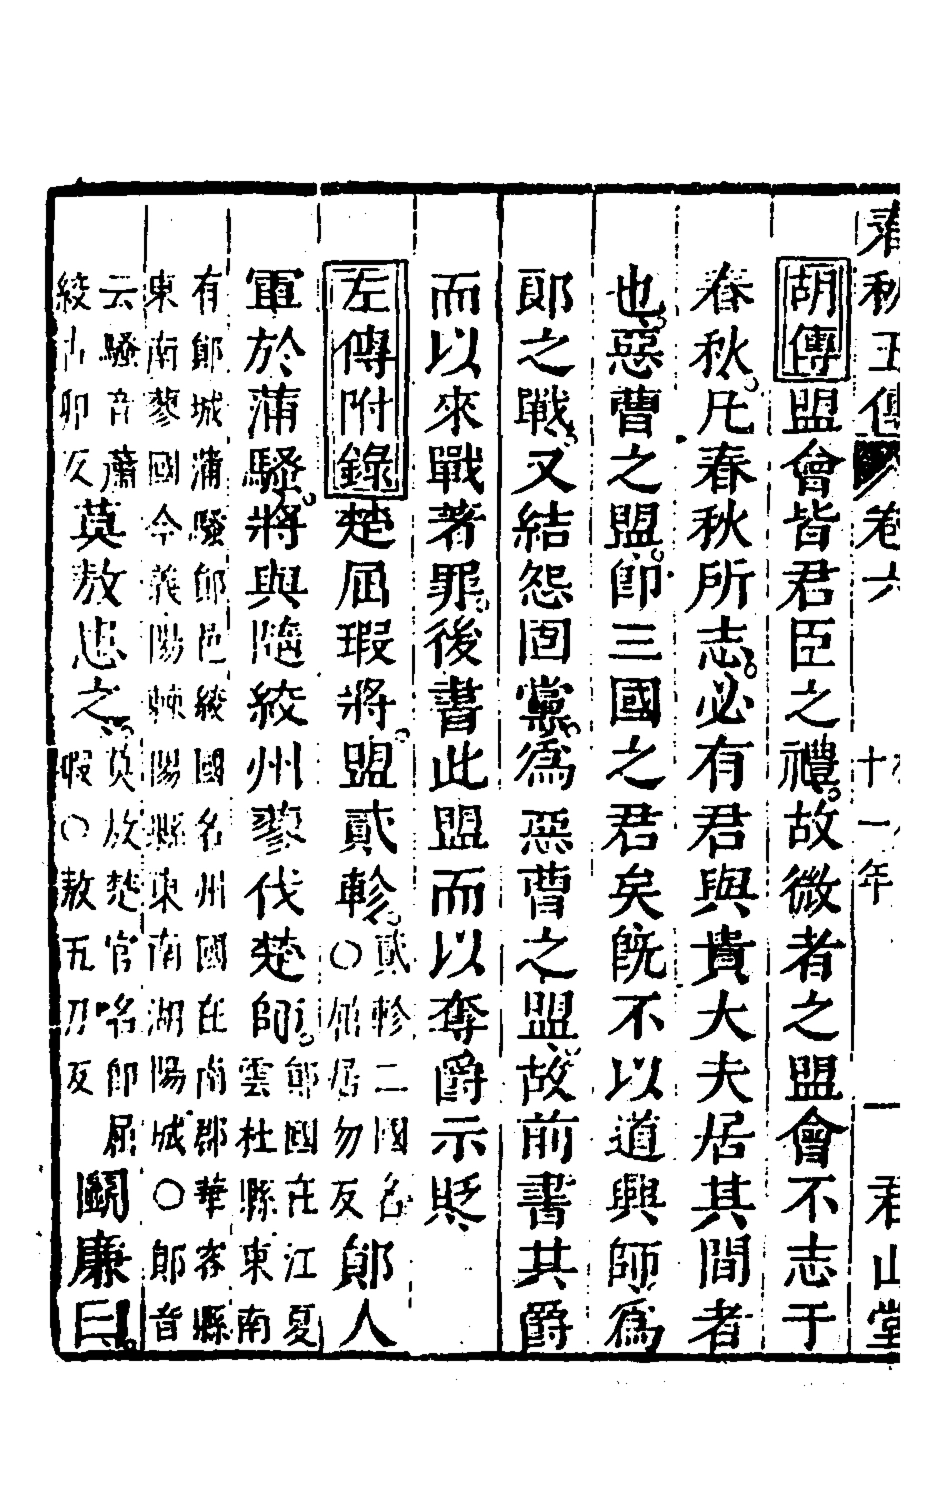 春秋五傳 卷六 十一年 一 君山堂
胡傳盟會皆君臣之禮故微者之盟會不志于
春秋凡春秋所志必有君與貴大夫居其間者
也惡曹之盟卽三國之君矣旣不以道興師爲
郎之戰又結怨固黨爲惡曹之盟故前書其爵
而以來戰著罪後書此盟而以奪爵示貶
左傳附錄楚屈瑕將盟貳軫貳軫二國名○屈居勿反鄖人
軍於蒲騷將與隨絞州蓼伐楚師鄖國在江夏雲杜縣東南
有鄖城蒲騷鄖邑絞國名州國在南郡華容縣東南蓼國今義陽棘陽縣東南湖陽城○鄖音
云騷音蕭絞古卯反莫敖患之莫敖楚官名卽屈瑕○敖五刀反鬬廉曰